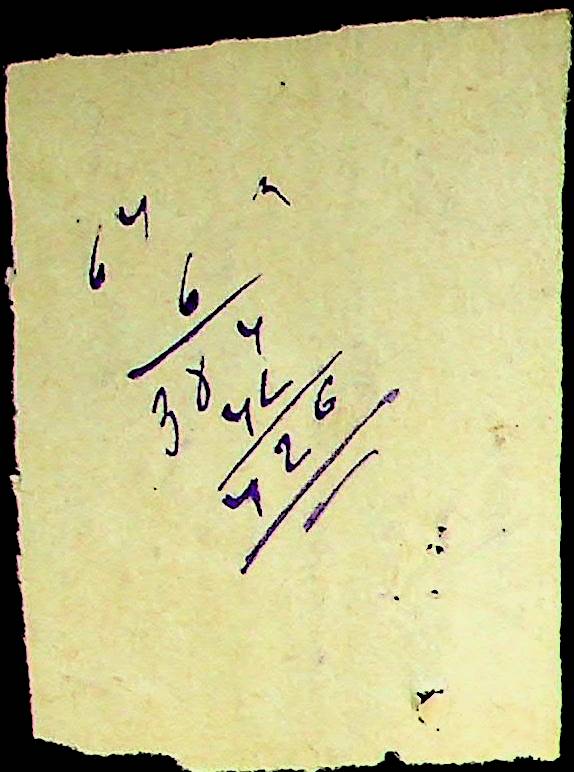 64
6
384
42
426